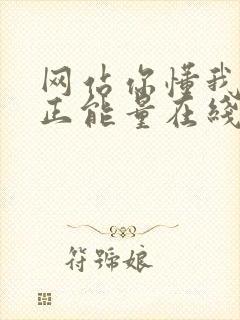 网站你懂我
正能量在线
符號娘